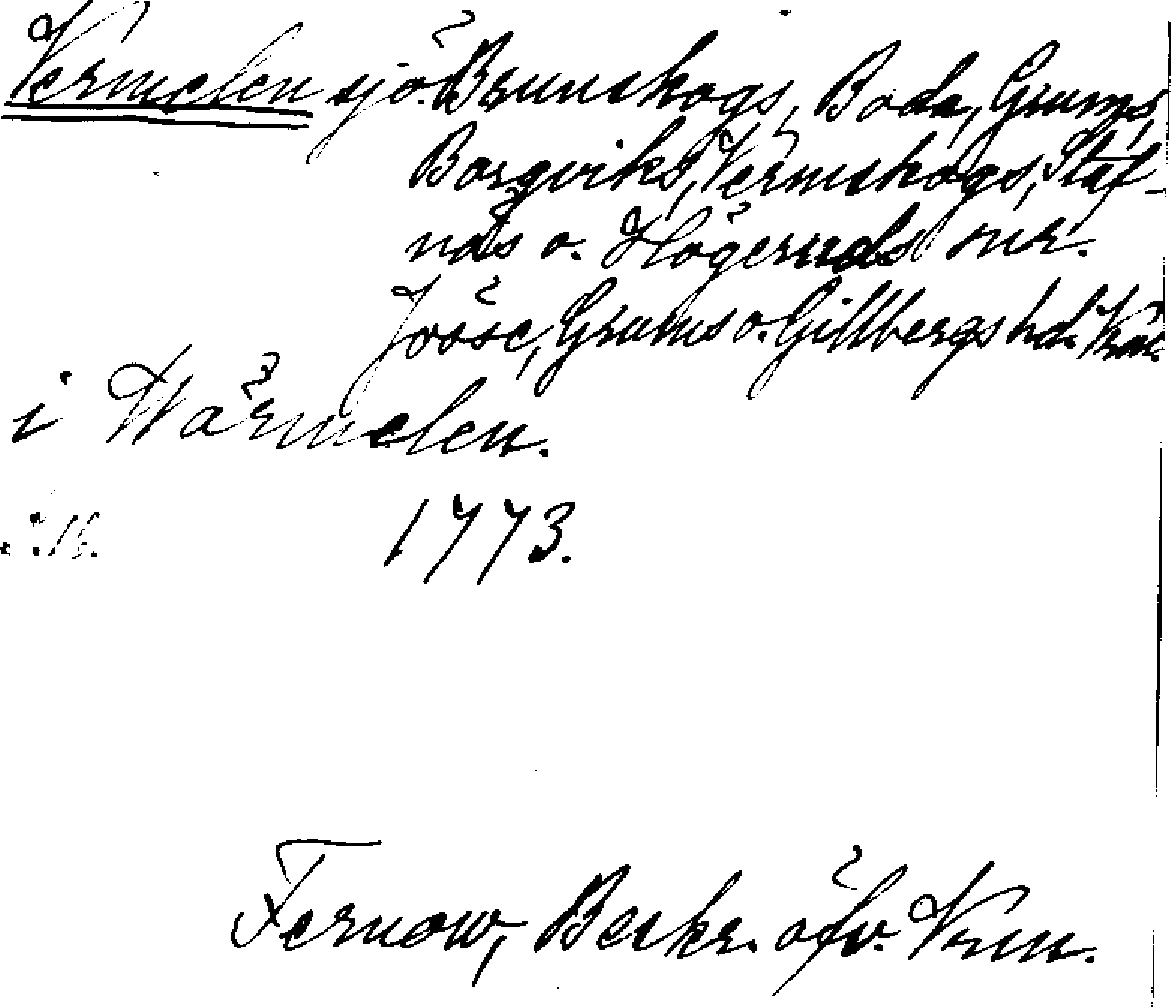 Vermelen sjö. Brunskogs, Boda, Grums,
Borgviks, Vermskogs, Staf-
näs o. Högeruds snr.
Jösse, Grums o. Gillbergs hd. Vrml.
i Wärmelen.
1773.
Fernow, Beskr. öfv. Vrm.